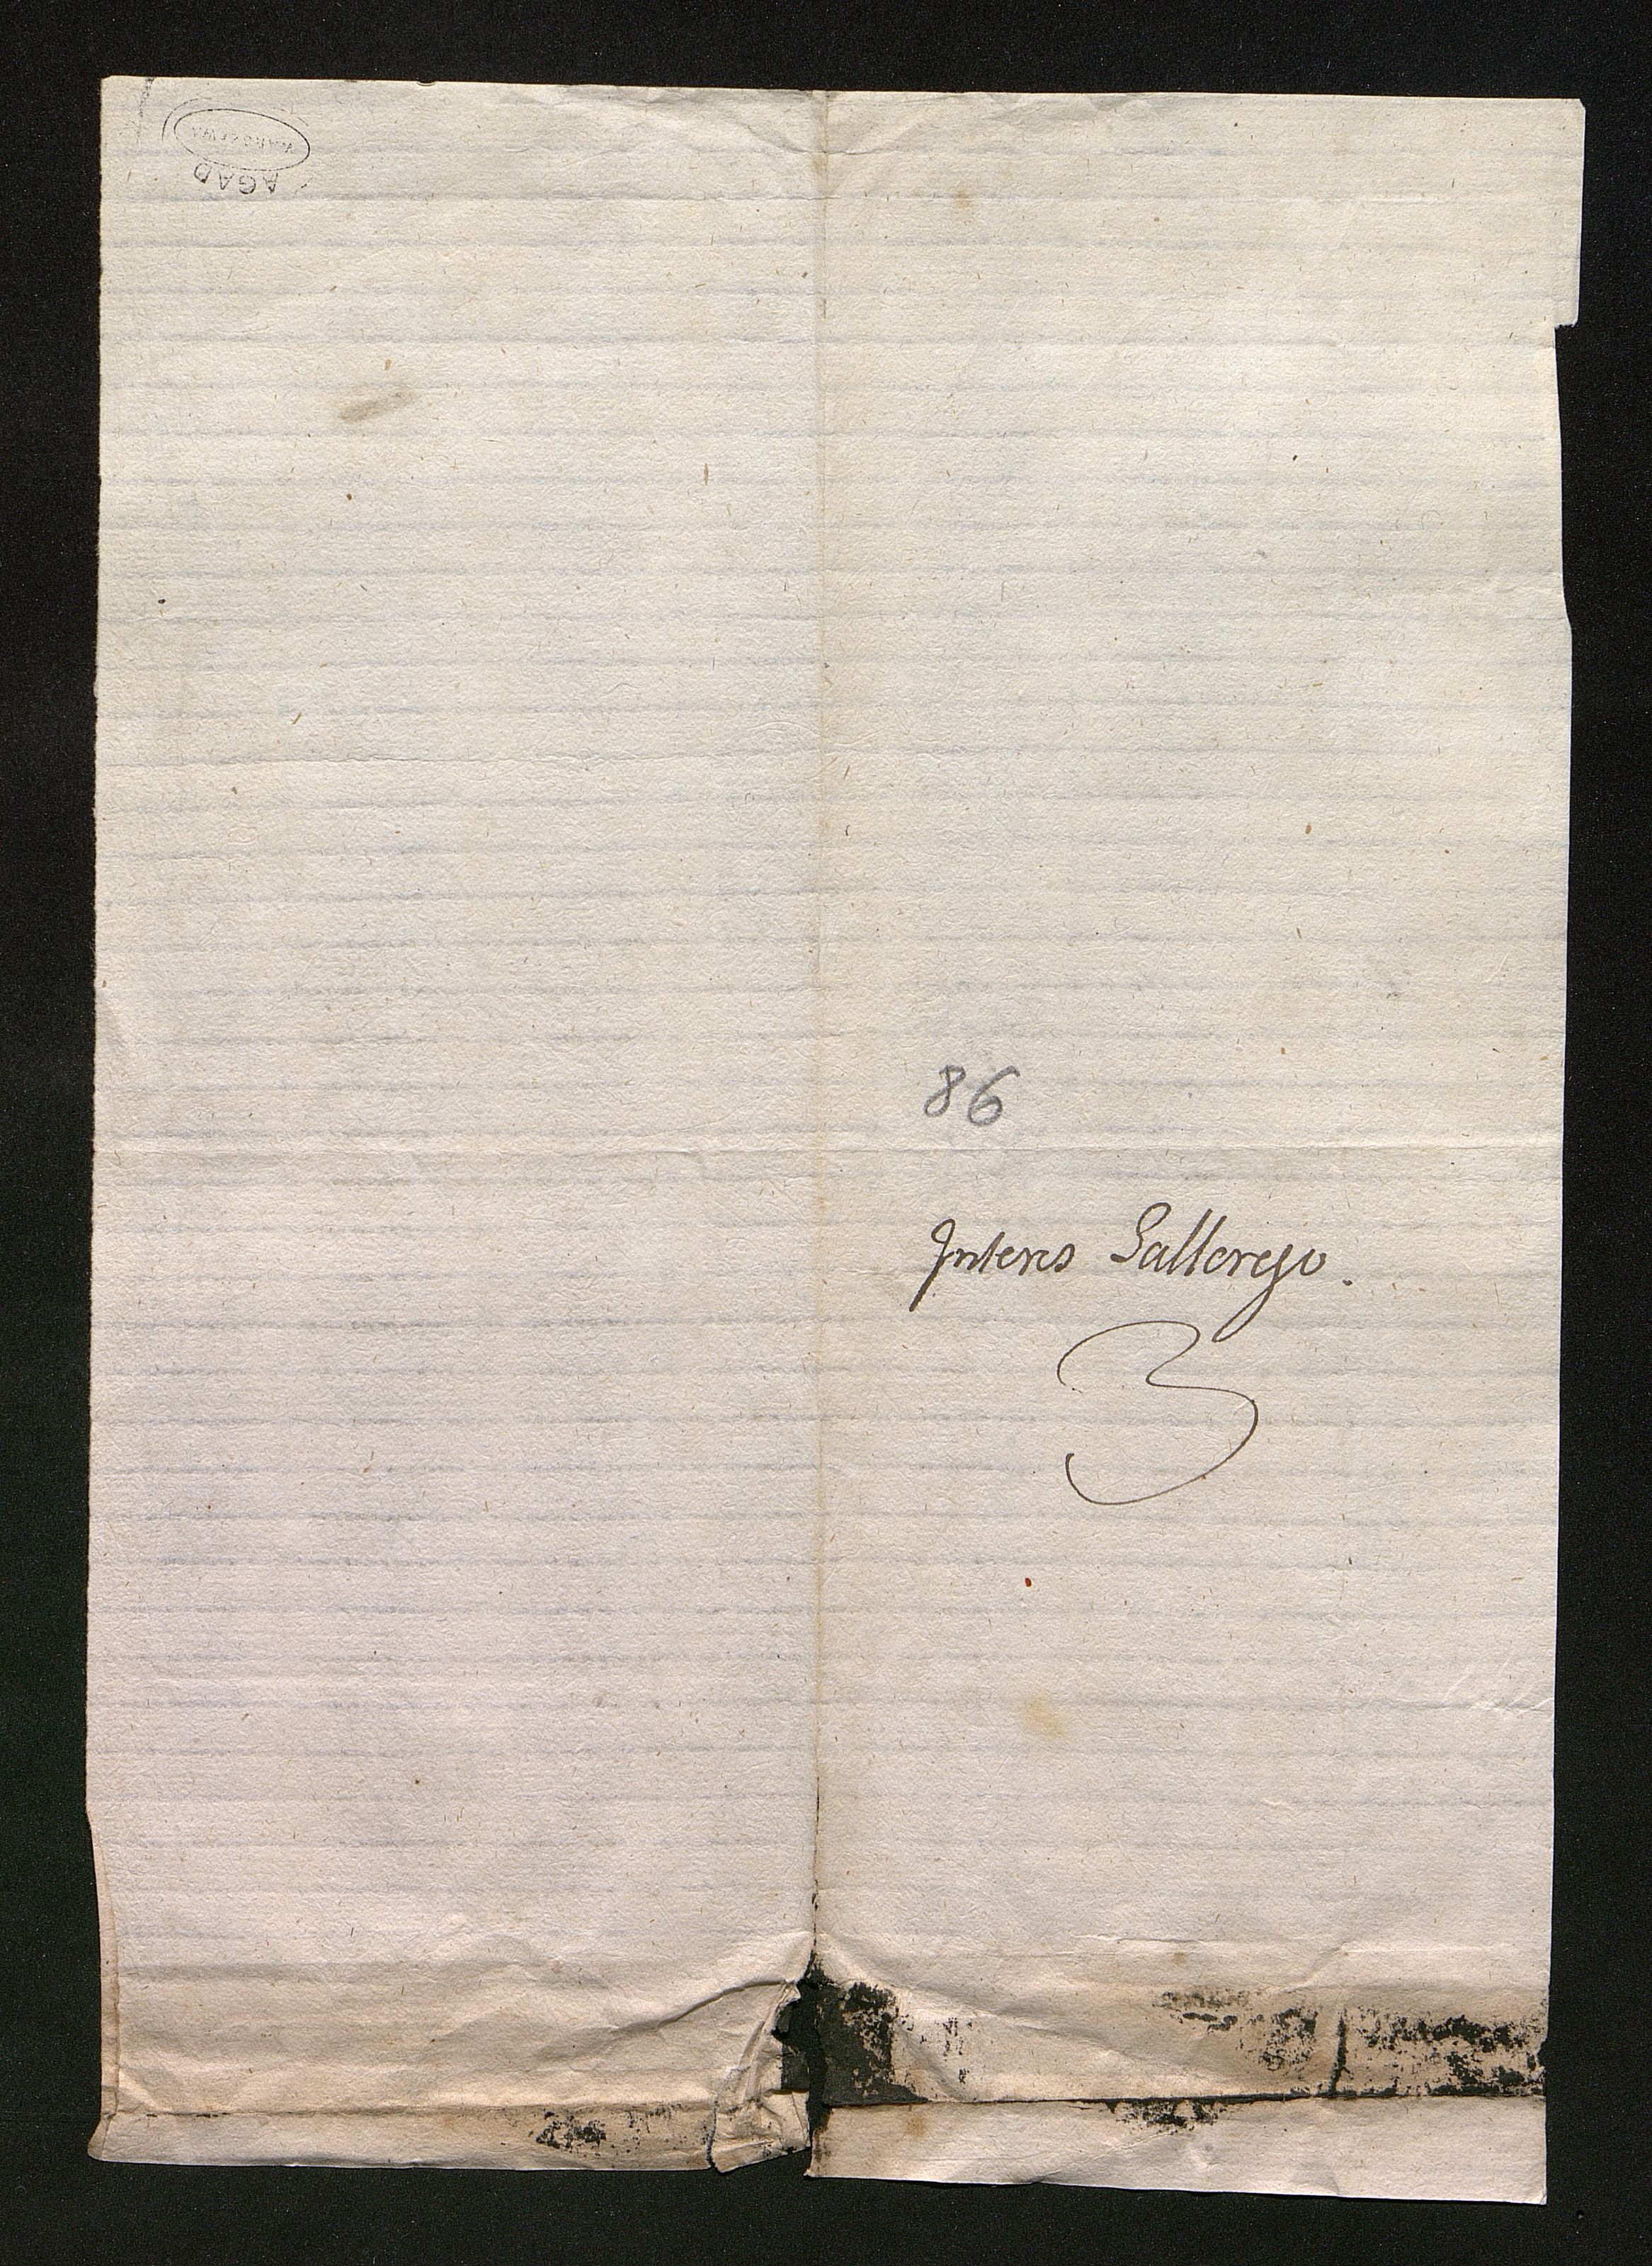 WARSZAWA
AGAD
86
Interes Sallerego.
3